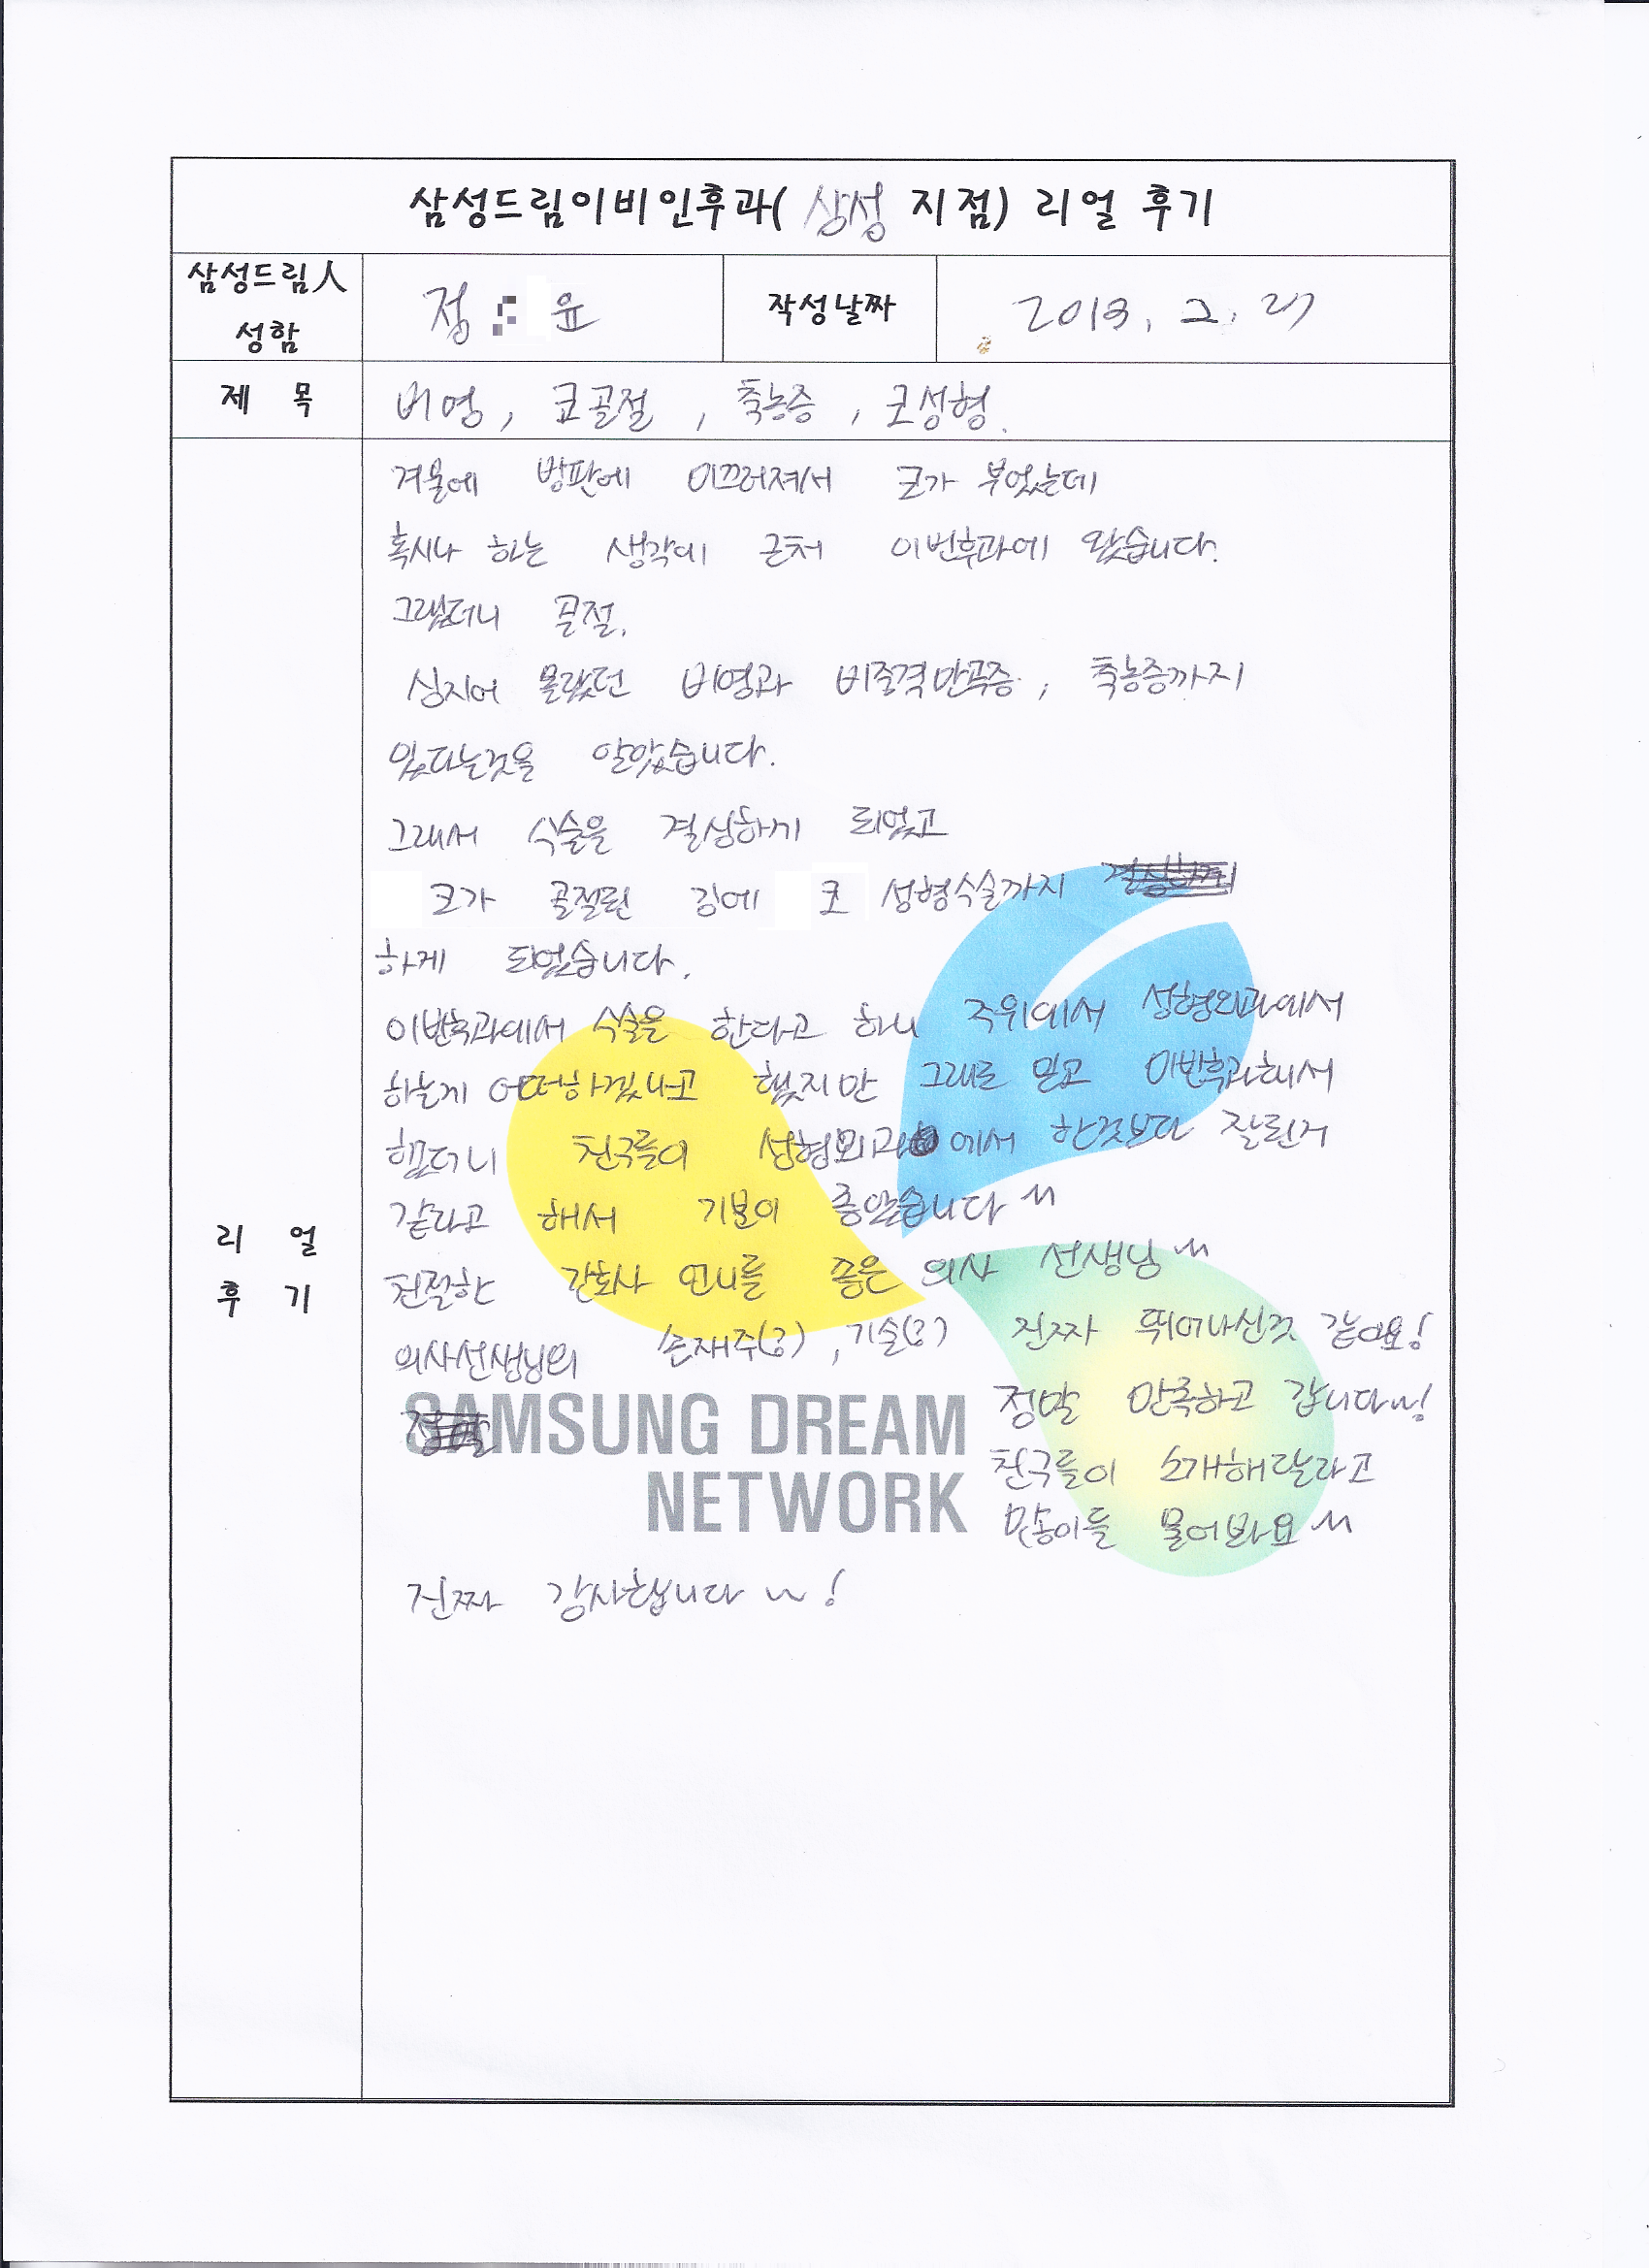 삼성드림이비인후과( 삼성 지점) 리얼 후기
삼성드림人 성함
정 윤
작성날짜
2013. 2. 27
제 목
비염, 코골절, 축농증, 코성형.
리 얼 후 기
겨울에 빙판에 미끄러져서 코가 부었는데
혹시나 하는 생각에 근처 이빈후과에 왔습니다.
그랬더니 골절.
심지어 몰랐던 비염과 비중격만곡증, 축농증까지
있다는것을 알았습니다.
그래서 수술을 결심하기 되었고
코가 골절된 김에 코 성형수술까지
하게 되었습니다.
이빈후과에서 수술을 한다고 하니 주위에서 성형외과에서
하는게 어떠하겠냐고 했지만 그대로 믿고 이빈후과해서
했더니 친구들이 성형외과에서 한것보다 잘된거
같다고 해서 기분이 좋았습니다^^
친절한 간호사 언니들 좋은 의사 선생님^^
의사선생님의 손재주(?), 기술(?) 진짜 뛰어나신것 같아요!
정말 만족하고 갑니다~!
친구들이 소개해달라고
많이들 물어봐요^^
진짜 감사합니다~!
SAMSUNG DREAM
NETWORK